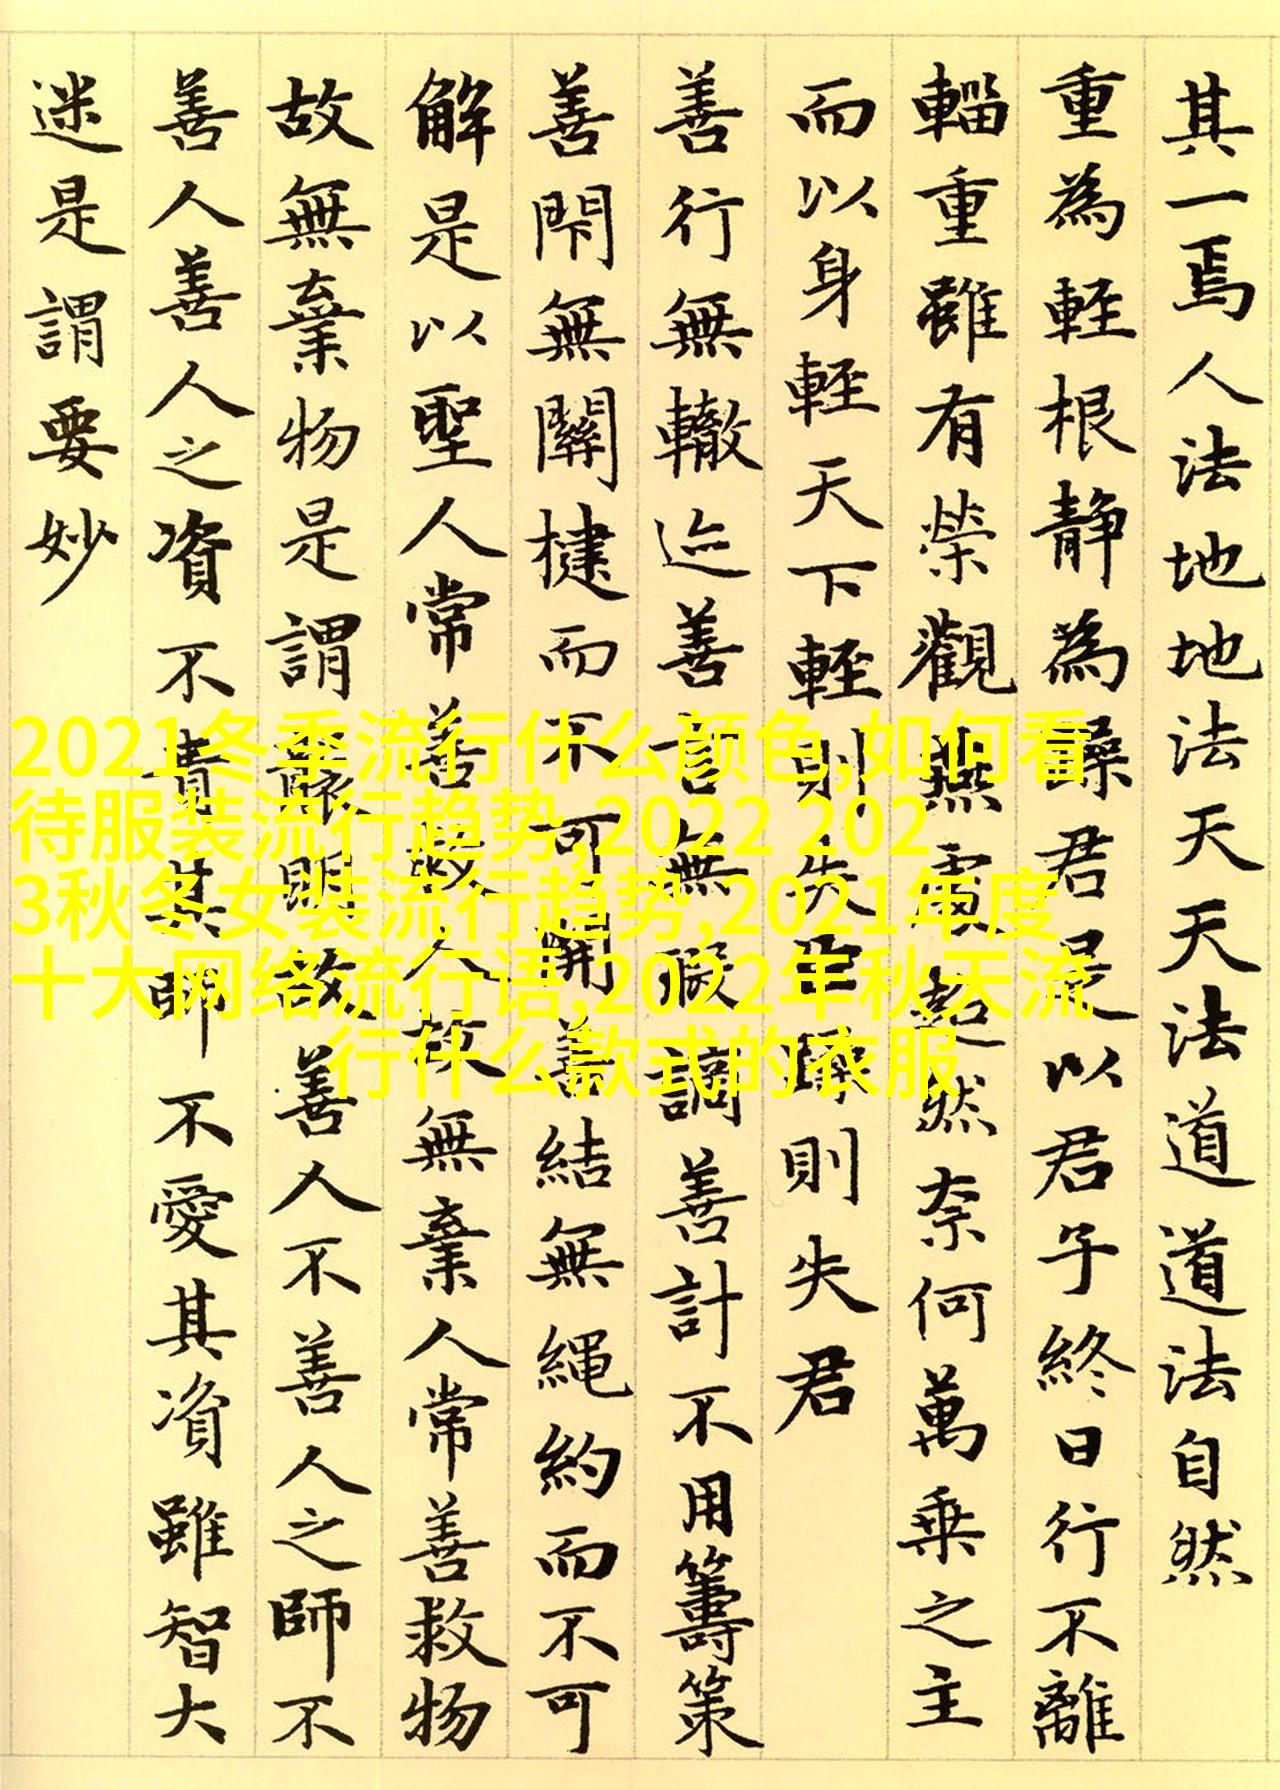 其一焉人法地地法天天法道道法自然
重為輕根靜為躁君是以君子終日行不離
輜重雖有榮觀燕處超然奈何萬乘之主
而以身輕天下輕則失臣躁則失君
善行無轍迹善言無瑕謫善計不用籌策
善閇無關楗而不可開善結無繩約而不可
解是以聖人常善救人故無棄人常善救物
故無棄物是謂襲明故善人不善人之師不
善人善人之資不貴其師不愛其資雖智大
迷是謂要妙
2021冬季流行什么颜色,如何看
待服装流行趋势,2022 202
3秋冬女装流行趋势,2021年度
十大网络流行语,2022年秋天流
行什么款式的衣服